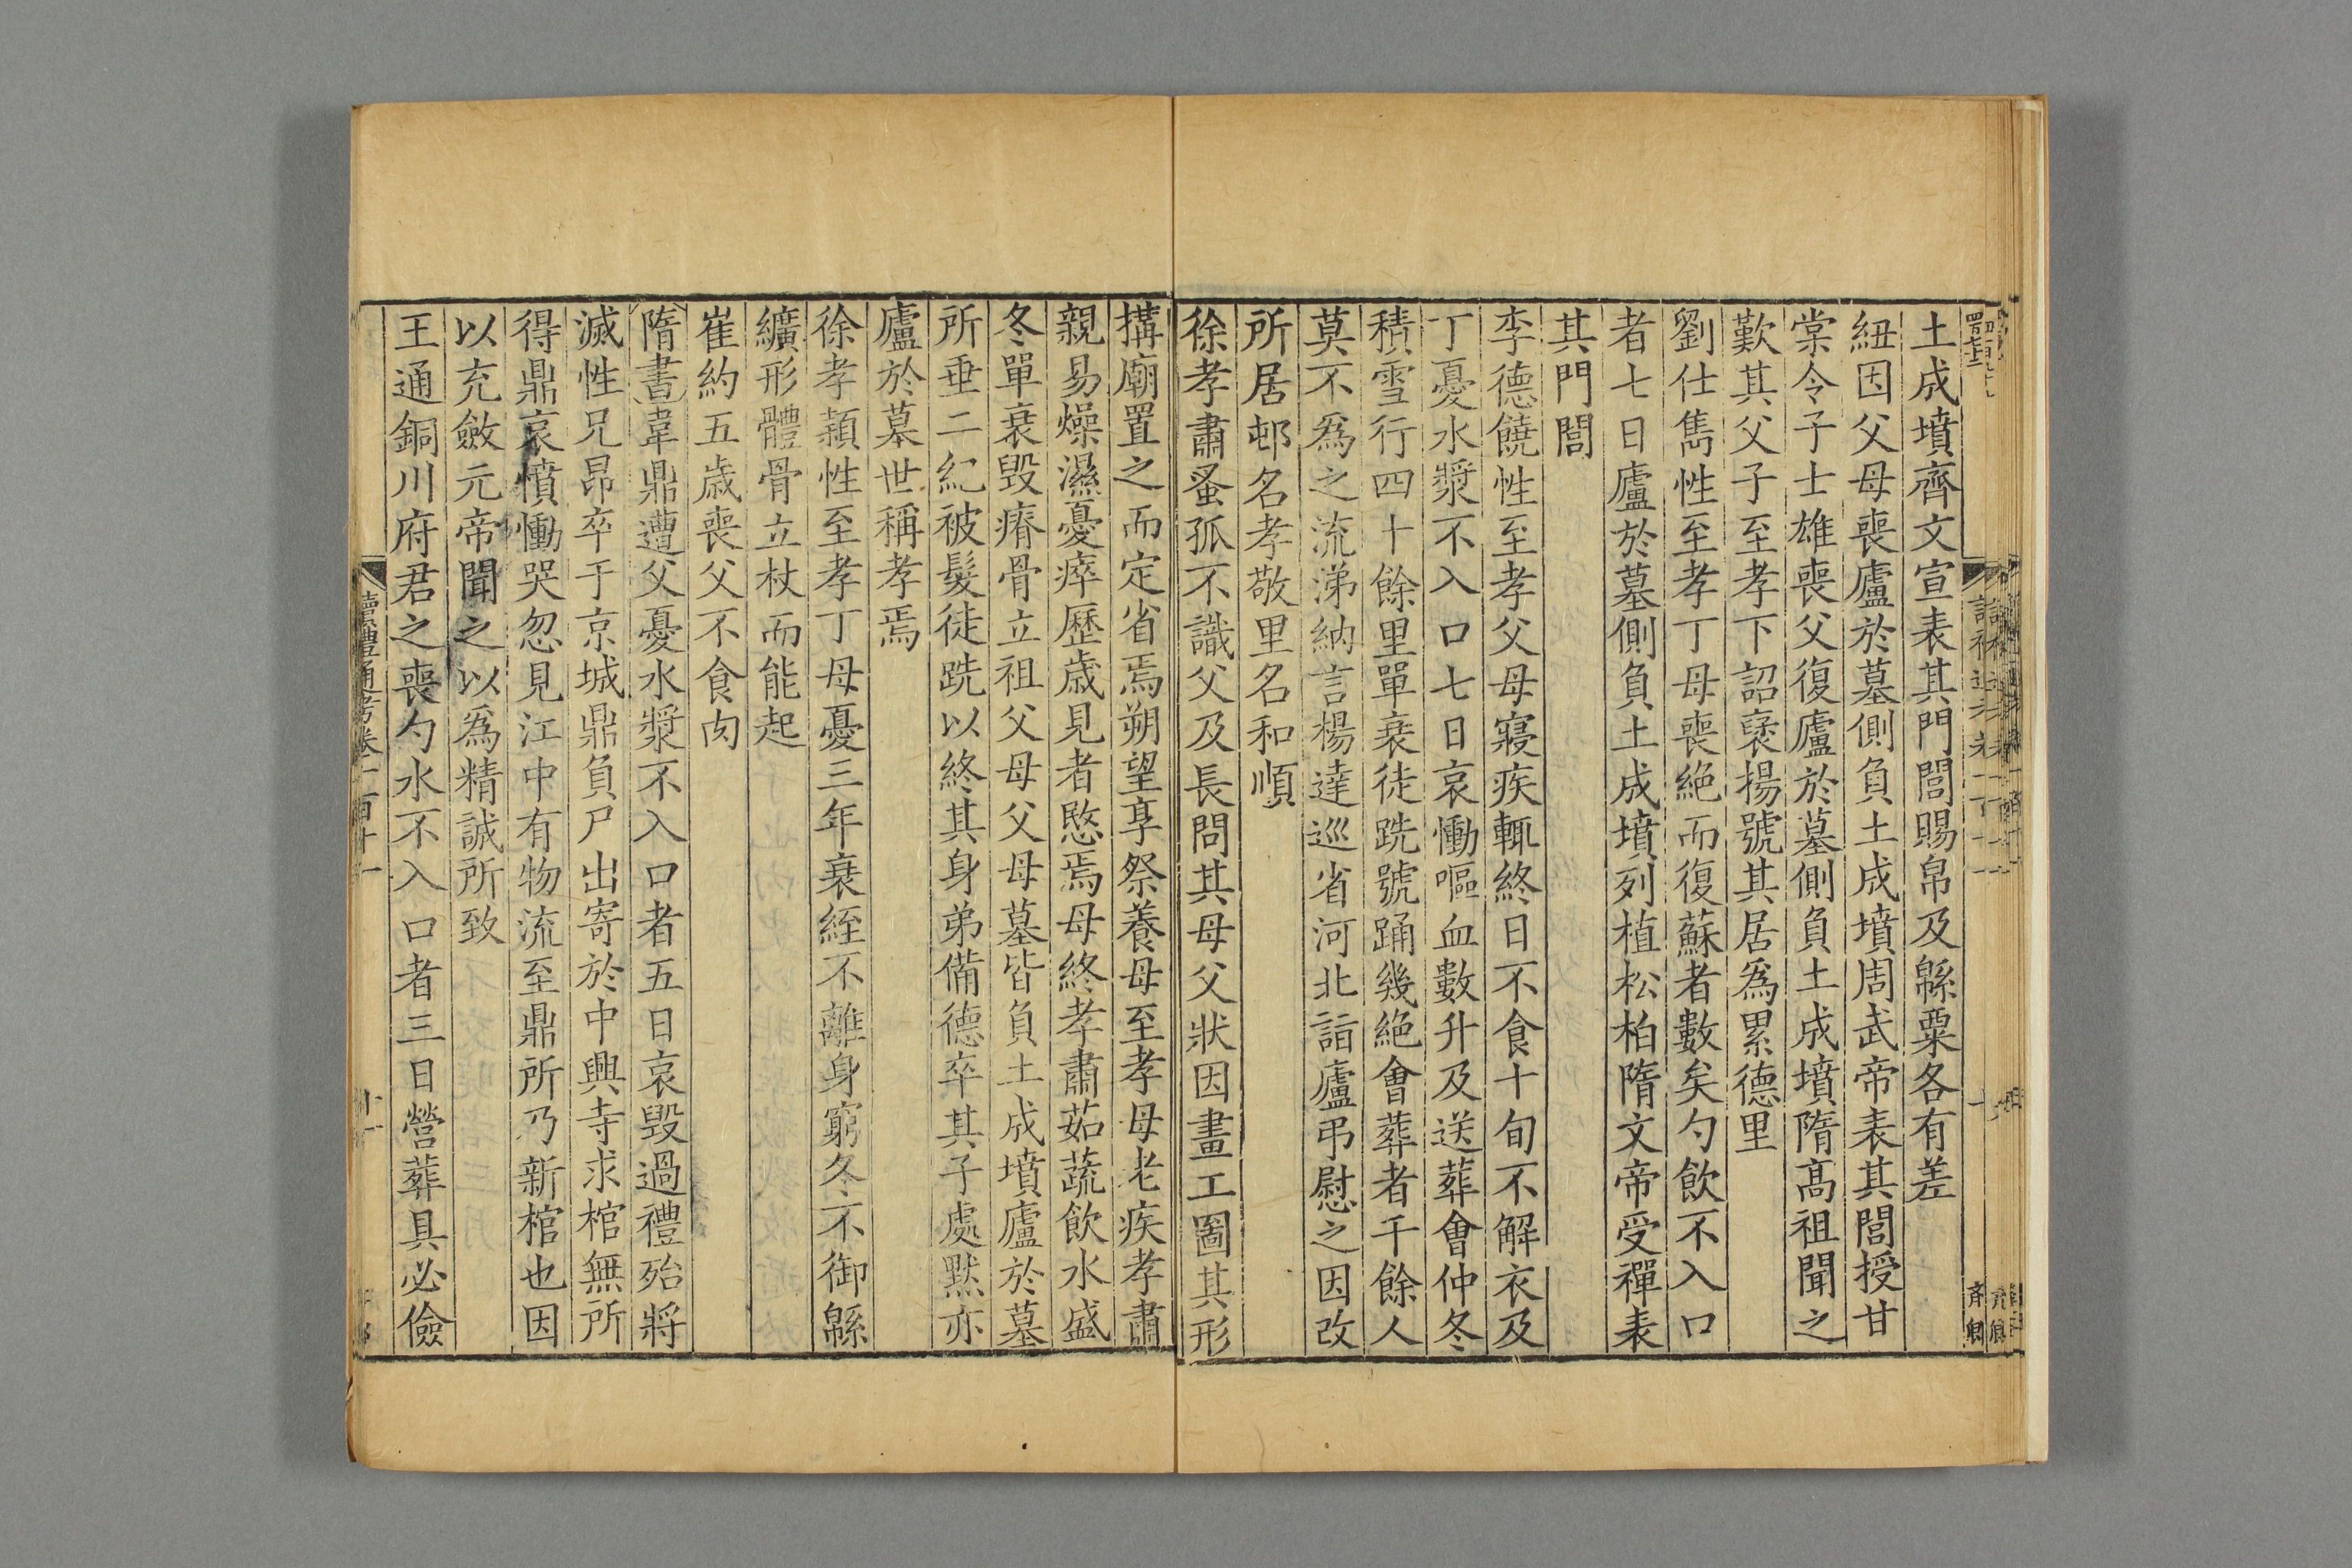 土成墳齊文宣表其門閭賜帛及緜粟各有差
紐因父母喪廬於墓側負土成墳周武帝表其閭授甘
棠令子士雄喪父復廬於墓側負土成墳隋高祖聞之
歎其父子至孝下詔襃揚號其居爲累德里
劉仕儁性至孝丁母喪絶而復蘇者數矣勺飲不入口
者七日廬於墓側負土成墳列植松柏隋文帝受禪表
其門閭
李德饒性至孝父母寢疾輒終日不食十旬不解衣及
丁憂水漿不入口七日哀慟嘔血數升及送葬會仲冬
積雪行四十餘里單衰徒跣號踊幾絶會葬者千餘人
莫不爲之流涕納言楊達巡省河北詣廬弔慰之因改
所居邨名孝敬里名和順
徐孝肅蚤孤不識父及長問其母父狀因畫工圖其形
搆廟置之而定省焉朔望享祭養母至孝母老疾孝肅
親易燥濕憂瘁歷歲見者愍焉母終孝肅茹蔬飲水盛
冬單衰毀瘠骨立祖父母父母墓皆負土成墳廬於墓
所垂二紀被髮徒跣以終其身弟備德卒其子處默亦
廬於墓世稱孝焉
徐孝頴性至孝丁母憂三年衰絰不離身窮冬不御緜
纊形體骨立杖而能起
崔約五歲喪父不食肉
隋書韋鼎遭父憂水漿不入口者五日哀毀過禮殆將
滅性兄昂卒于京城鼎負尸出寄於中興寺求棺無所
得鼎哀憤慟哭忽見江中有物流至鼎所乃新棺也因
以充斂元帝聞之以爲精誠所致
王通銅川府君之喪勺水不入口者三日營葬具必儉
讀禮通考卷一百十一
十一